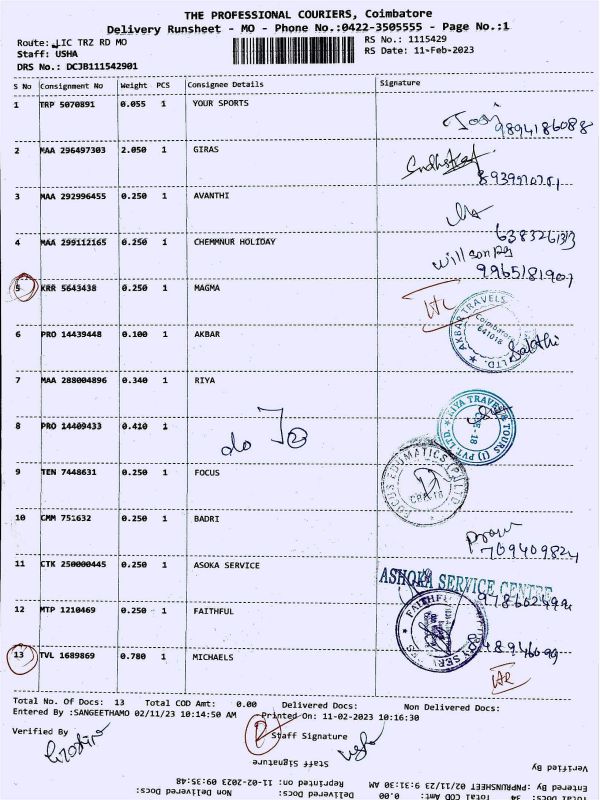 THE PROFESSIONAL COURIERS, Coimbatore
Delivery Runsheet - MO - Phone No.:0422-3505555 - Page No.:1
Route: LIC TRZ RD MO RS No.: 1115429
Staff: USHA RS Date: 11-Feb-2023
DRS No.: DCJB111542901
S No Consignment No Weight PCS Consignee Details Signature
1 TRP 5070891 0.055 1 YOUR SPORTS
9894186088
2 MAA 296497303 2.050 1 GIRAS
3 MAA 292996455 0.250 1 AVANTHI
4 MAA 299112165 0.250 1 CHEMMNUR HOLIDAY
9965181907
5 KRR 5643438 0.250 1 MAGMA
AKBAR TRAVELS
Coimbatore
641018
LTD.
6 PRO 14439448 0.100 1 AKBAR
Sakthi
7 MAA 288004896 0.340 1 RIYA
RIYA TRAVEL & TOURS (I) PVT. LTD.
CBE-18
8 PRO 14409433 0.410 1
do
9 TEN 7448631 0.250 1 FOCUS
FOCUS EDUMATICS (P) LTD
10 CMM 751632 0.250 1 BADRI
709409824
11 CTK 250000445 0.250 1 ASOKA SERVICE
ASHOKA SERVICE CENTRE
12 MTP 1210469 0.250 1 FAITHFUL
FAITHFUL
13 TVL 1689869 0.780 1 MICHAELS
Total No. Of Docs: 13 Total COD Amt: 0.00 Delivered Docs: Non Delivered Docs:
Entered By :SANGEETHAMO 02/11/23 10:14:50 AM Printed On: 11-02-2023 10:16:30
Verified By Staff Signature
Staff Signature
Verified By
Entered By :PNPRUNSHEET 02/11/23 9:31:30 AM Reprinted on: 11-02-2023 09:35:48
Total Docs: 34 Total COD Amt: 0.00 Delivered Docs: Non Delivered Docs: